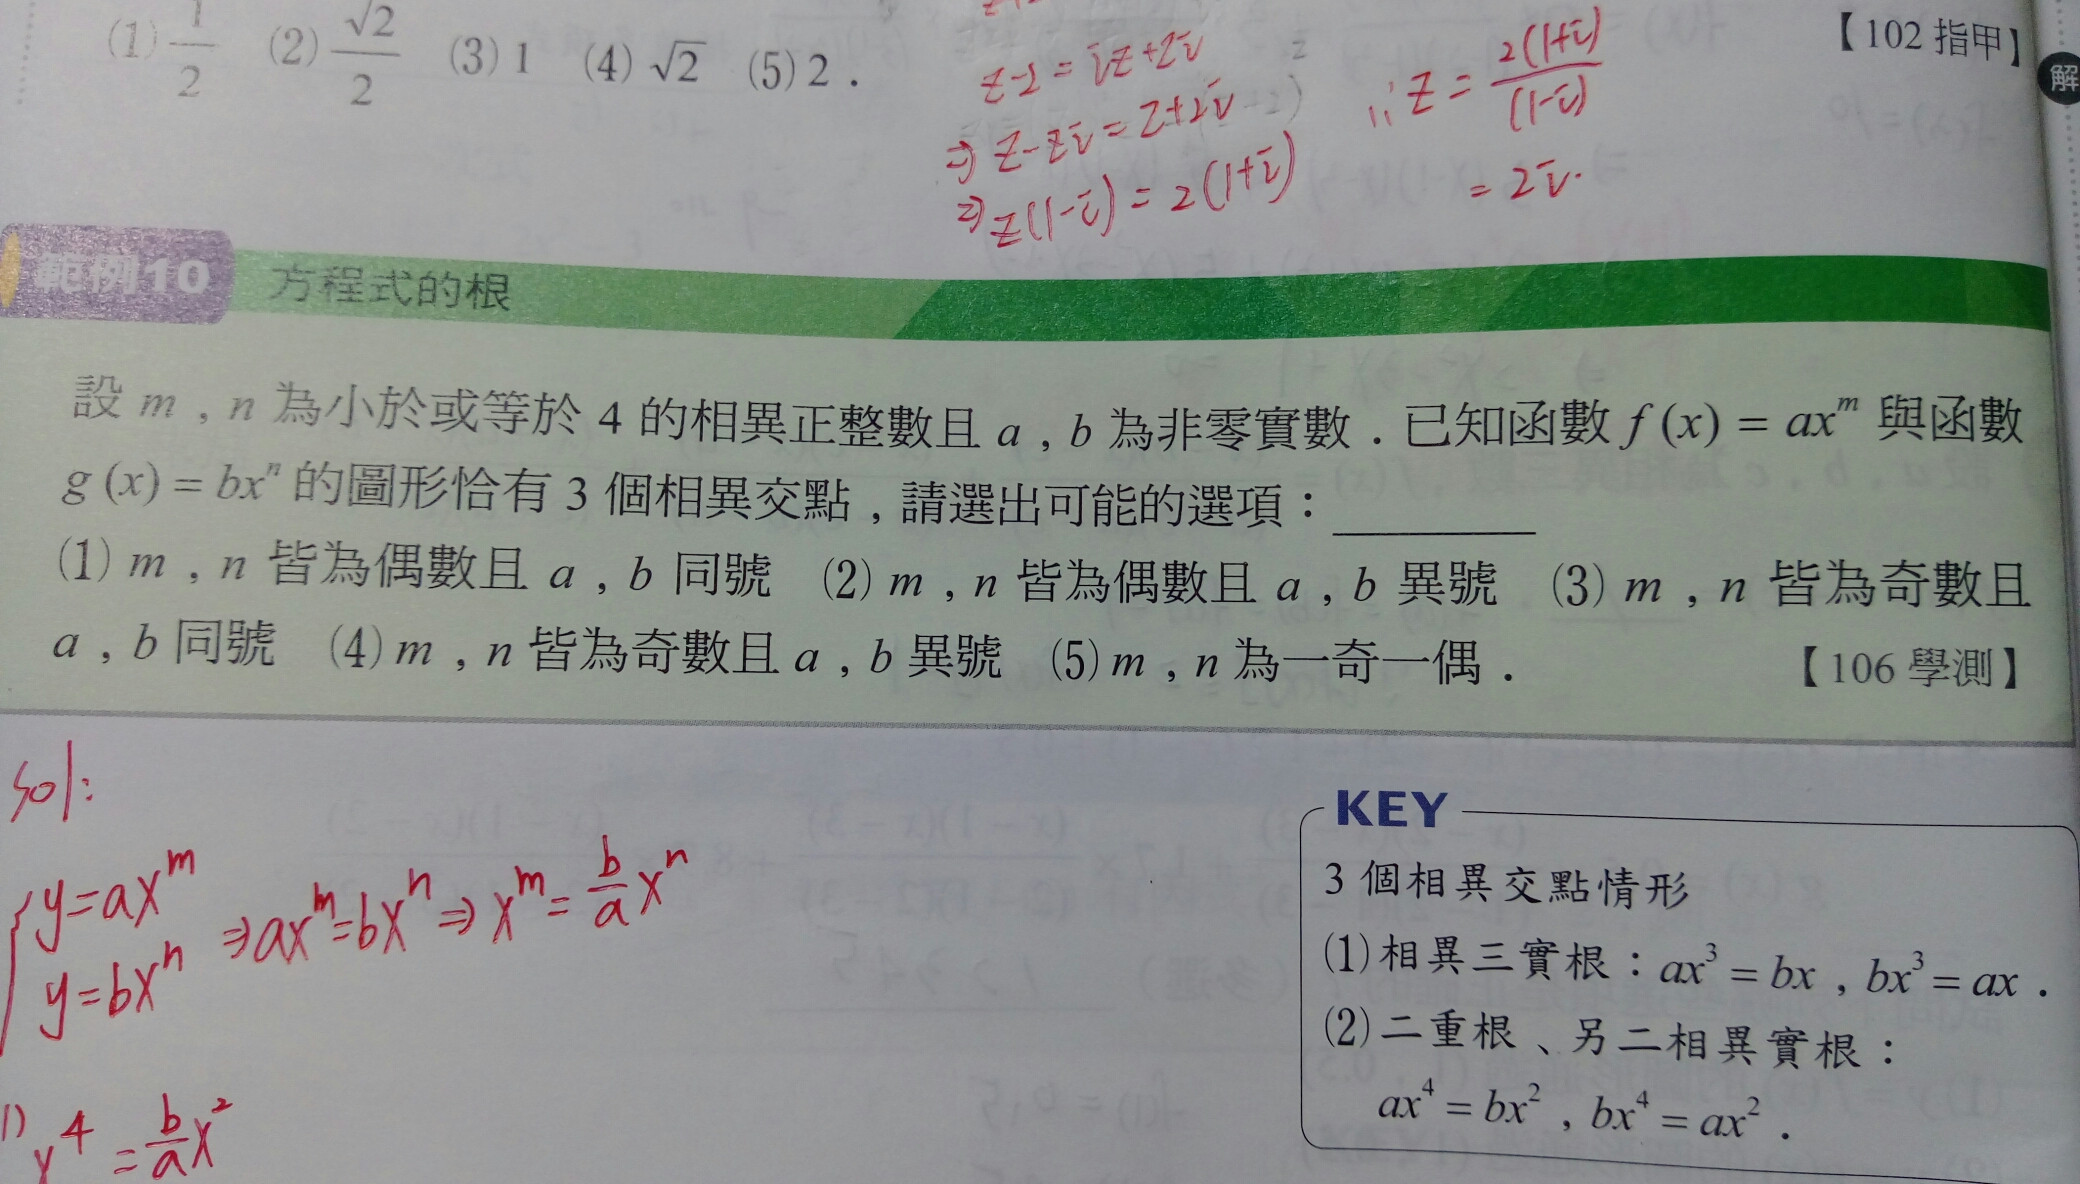 (1) 1/2 (2) √2/2 (3) 1 (4) √2 (5) 2．
【102 指甲】
解
z-2 = iz+2i
⇒ z-zi = 2+2i
⇒ z(1-i) = 2(1+i)
∴ z = 2(1+i)/(1-i)
= 2i.
範例10 方程式的根
設 m , n 為小於或等於 4 的相異正整數且 a , b 為非零實數．已知函數 f (x) = axᵐ 與函數
g (x) = bxⁿ 的圖形恰有 3 個相異交點，請選出可能的選項：________
(1) m , n 皆為偶數且 a , b 同號 (2) m , n 皆為偶數且 a , b 異號 (3) m , n 皆為奇數且
a , b 同號 (4) m , n 皆為奇數且 a , b 異號 (5) m , n 為一奇一偶．
【106 學測】
sol:
{ y=axᵐ
y=bxⁿ
⇒ axᵐ=bxⁿ ⇒ xᵐ= b/a xⁿ
1) x⁴ = b/a x²
KEY
3 個相異交點情形
(1) 相異三實根：ax³ = bx , bx³ = ax .
(2) 二重根、另二相異實根：
ax⁴ = bx² , bx⁴ = ax² .